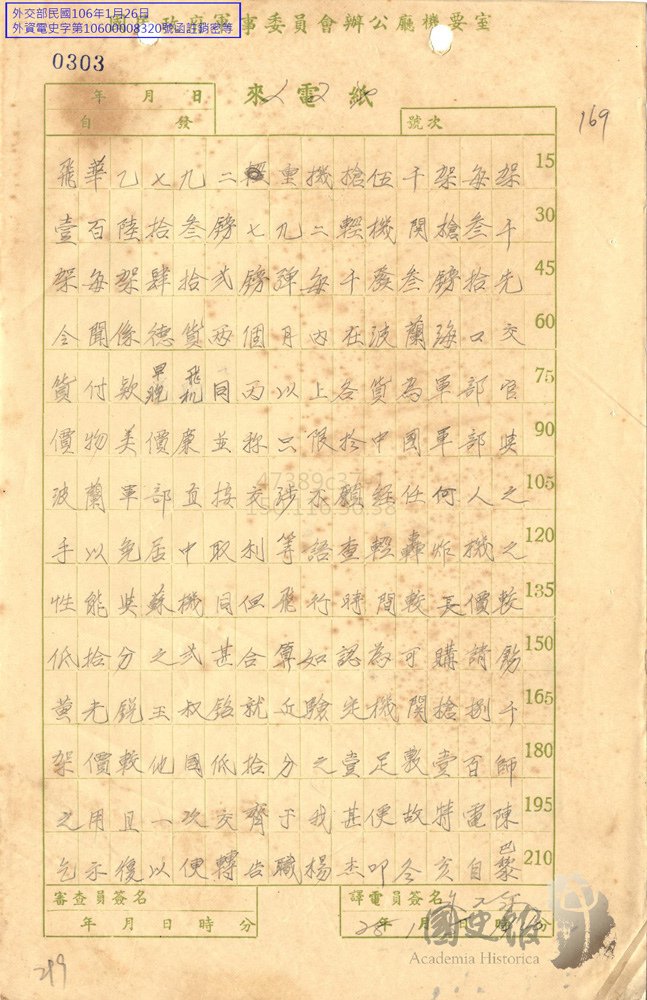 外交部民國106年1月26日
外資電史字第10600008320號函註銷密等
國民政府軍事委員會辦公廳機要室
0303
年 月 日
來電紙
自 發
號次
169
飛華乙七九二 重機槍伍千架每架 15
壹百陸拾叁鎊七九二輕機關槍叁千 30
架每架肆拾弍鎊彈每千發叁鎊拾先 45
令聞係德貨兩個月內在波蘭海口交 60
貨付款 飛机同丙以上各貨為軍部官 75
價物美價廉並称只限於中國軍部與 90
波蘭軍部直接交涉不願經任何人之 105
手以免居中取利等語查輕轟炸機之 120
性能與蘇機同但飛行時間較長價較 135
低拾分之弍甚合算如認為可購請飭 150
黄光銳王叔銘就近驗定機關槍捌千 165
架價較他國低拾分之壹足敷壹百師 180
之用且一次交齊于我甚便故特電陳 195
乞示復以便轉告職楊杰叩冬亥自巴黎 210
審查員簽名
年 月 日 時 分
譯電員簽名
28年1月 日 時 分
國史館
Academia Historica
219